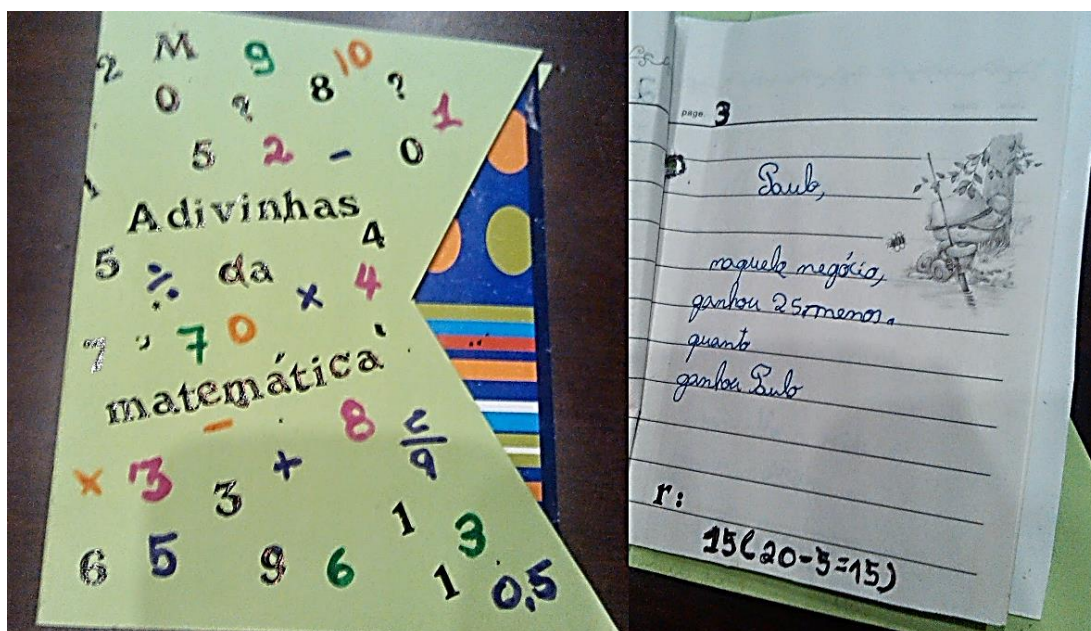 M 9 10
2 0 ? 8 ? 1
5 2 - 0
1
Adivinhas
5 ÷ da x 4 4
7 7 0
matemática
- 8
x 3 3 +
6 5 9 6 1 3 1 0,5
page 3
Paulo,
naquele negócio,
ganhou 25 menos.
quanto
ganhou Paulo
r:
15(20-5=15)